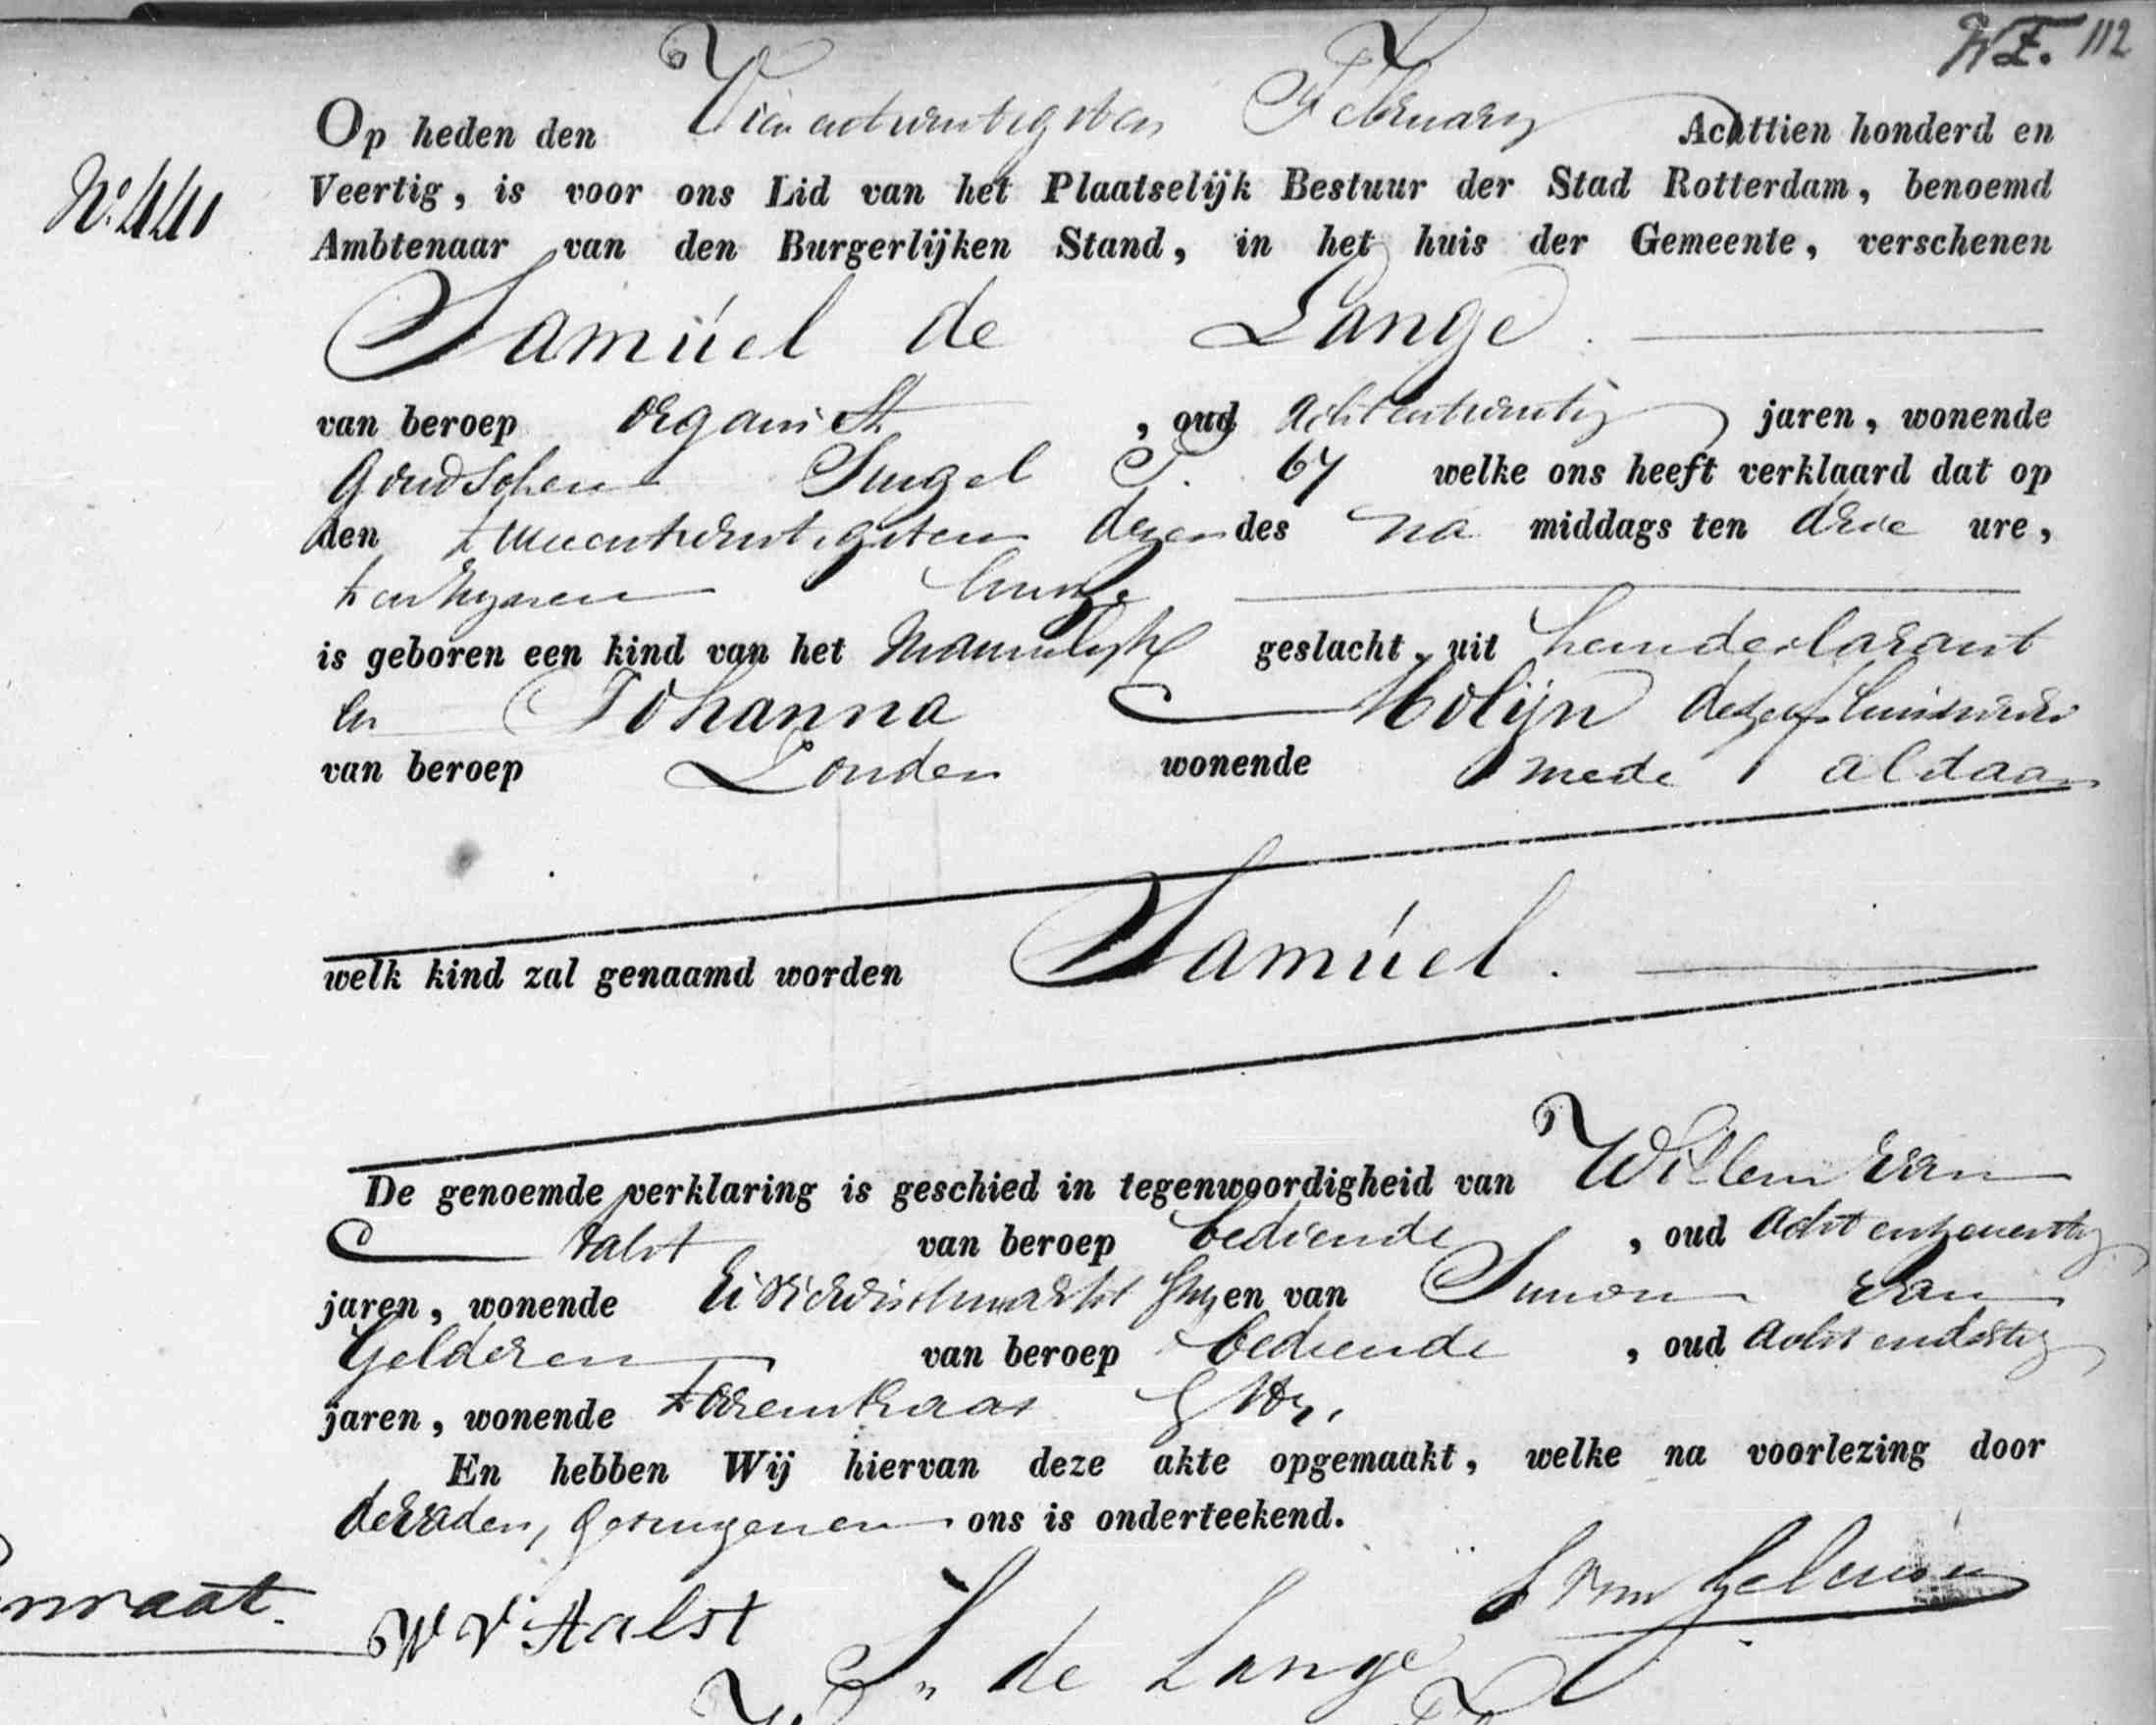 WZ. 112
Op heden den Vierentwintigsten February Achttien honderd en
N° 440
Veertig, is voor ons Lid van het Plaatselijk Bestuur der Stad Rotterdam, benoemd
Ambtenaar van den Burgerlijken Stand, in het huis der Gemeente, verschenen
Samúel de Lange.
van beroep organist, oud achtentwintig jaren, wonende
Goudschen Singel 67 welke ons heeft verklaard dat op
den tweeentwintigsten dezer des na middags ten drie ure,
tenhynen huize
is geboren een kind van het mannelyk geslacht, uit hemdeclarant
en Johanna Molijn deszelfs huisvrouw
van beroep Zonder wonende mede aldaar
welk kind zal genaamd worden Samúel.
De genoemde verklaring is geschied in tegenwoordigheid van Willem van
Aalst van beroep bediende, oud achtenzeventig
jaren, wonende en van Simon van
Gelderen van beroep bediende, oud achtendertig
jaren, wonende Torenstraat
En hebben Wij hiervan deze akte opgemaakt, welke na voorlezing door
denvader, getuigen en ons is onderteekend.
W V Aalst S. de Lange S van Gelderen